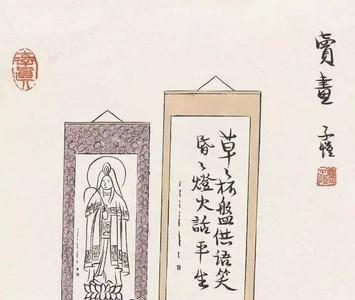 賣畫
子愷
草々杯盤供語笑
昏々燈火話平生